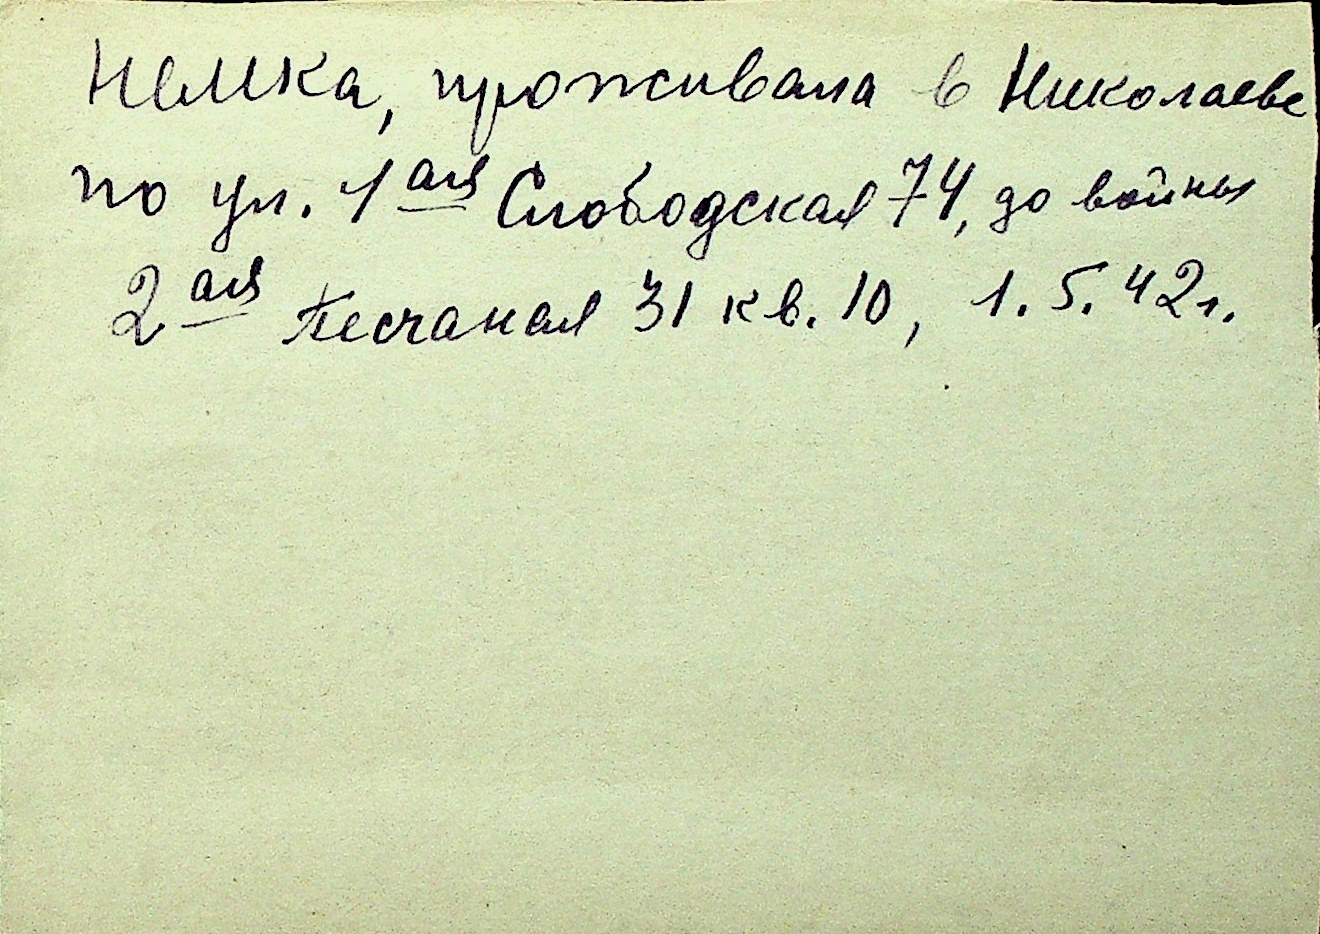 Немка, проживала в Николаеве
по ул. 1ая Слободская 74, до войны
2ая Песчаная 31 кв. 10, 1.5.42г.